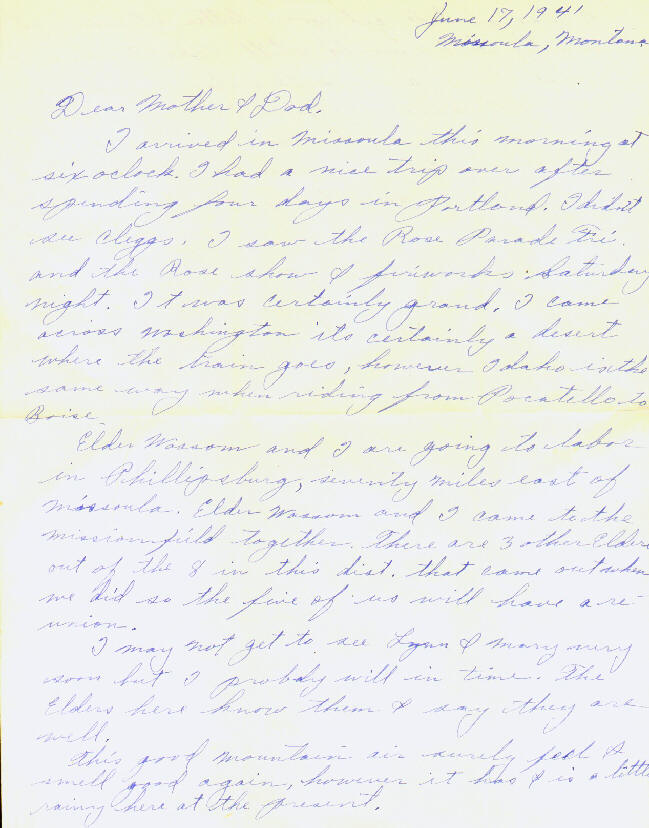 June 17, 1941
Missoula, Montana
Dear Mother & Dad.
I arrived in Missoula this morning at
six oclock. I had a nice trip over after
spending four days in Portland. I didn't
see Cleggs. I saw the Rose Parade Fri.
and the Rose show & fireworks Saturday
night. It was certainly grand. I came
across Washington its certainly a desert
where the train goes, however Idaho is the
same way when riding from Pocatello to
Boise
Elder Wossom and I are going to labor
in Phillipsburg, seventy miles east of
Missoula. Elder Wossom and I came to the
mission field together. There are 3 other Elders
out of the 8 in this dist. that came out when
we did so the five of us will have a re-
union.
I may not get to see Lynn & Mary very
soon but I probdy will in time. The
Elders here know them & say they are
well.
This good mountain air surely feel &
smell good again, however it has & is a little
rainy here at the present.